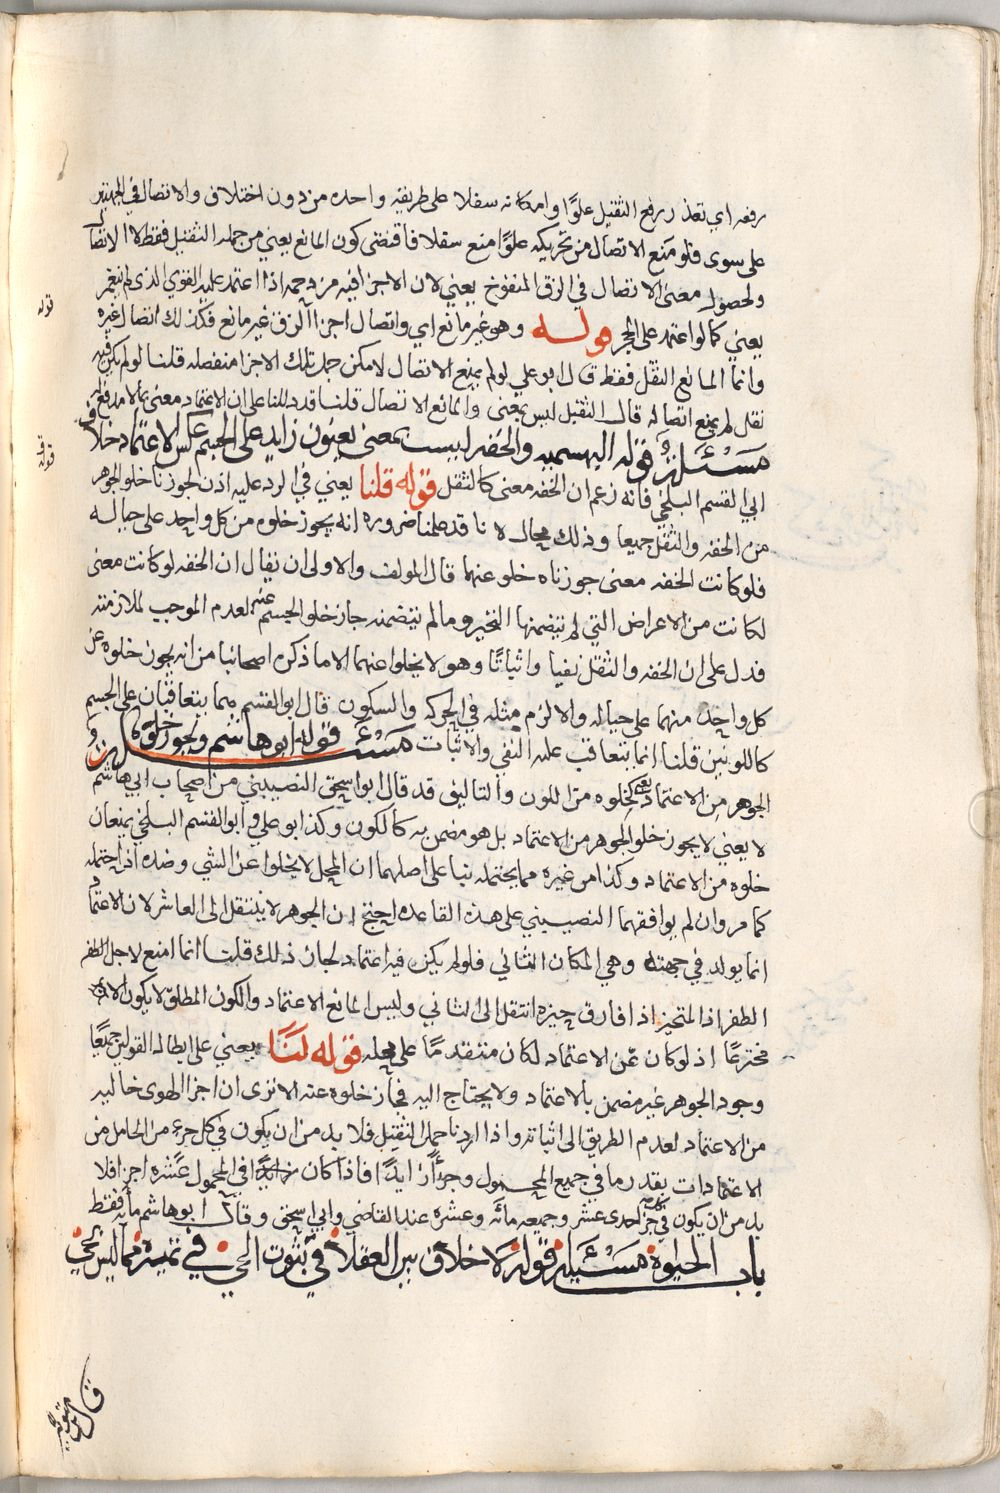 رفعه اي تعذر رفع الثقيل علوًا وامكانه سفلا على طريقه واحده من دون اختلاف والاتصال في الجهتين
على سوى فلو منع الاتصال من تحريكه علوًا منع سفلا فاقتضى كون المانع يعني من حمله الثقيل فقط لا الاتصال
ولحصول معنى الاتصال في الزق المنفوخ يعني لان الاجزا فيه مزدحمه اذا اعتمد عليه القوي الذي لم
يعني كما لو اعتمد على الحجر قوله وهو غير مانع اي واتصال اجزا الزق غير مانع فكذلك اتصال غيره
وانما المانع الثقل فقط قال ابو علي لو لم يمنع الاتصال لامكن حمل تلك الاجزا منفصله قلنا لو لم يكن فيه
ثقل لم يمنع اتصاله قال الثقيل ليس بمعنى والمانع الاتصال قلنا قد دللنا على ان الاعتماد معنى
مسئلة قوله البهشميه والخفه ليست بمعنى يعنون زايد على الجسم عكس الاعتماد خلاف
ابي القسم البلخي فانه زعم ان الخفه معنى كالثقل قوله قلنا يعني في الرد عليه اذن لجوزنا خلو الجوهر
من الخفه والثقل جميعا وذلك محال لانا قد علمنا ضروره انه يجوز خلوه من كل واحد على حياله
فلو كانت الخفه معنى جوزناه خلو عنهما قال المولف والاولى ان يقال ان الخفه لو كانت معنى
لكانت من الاعراض التي لم يتضمنها التحيز وما لم يتضمنه جاز خلو الجسم عنه لعدم الموجب لملازمته
فدل على ان الخفه والثقل نفيا واثباتًا وهو لا يخلوا عنهما الا ما ذكره اصحابنا من انه يجوز خلوه عن
كل واحد منهما على حياله والا لزم مثله في الحركه والسكون قال ابو القسم مما يتعاقبان على الجسم
كاللونين قلنا انما يتعاقب عليه النفي والاثبات مسئلة قوله ابو هاشم ويجوز خلو
الجوهر من الاعتماد يعني كخلوه من اللون والتاليف قد قال ابو اسحق النصيبيني من اصحاب ابي هاشم
لا يعني لا يجوز خلو الجوهر من الاعتماد بل هو مضمن به كالكون وكذا ابو علي وابو القسم البلخي يمنعان
خلوه من الاعتماد وكذا من غيره مما يحتمله بنا على اصلهما ان المحل لا يخلوا عن الشي وضده اذا احتمله
كما مر وان لم يوافقهما النصيبيني على هذه القاعده احتج ان الجوهر لا ينتقل الى العاشر لان الاعتماد
انما يولد في جهته وهي المكان الثاني فلو لم يكن فيه اعتماد لجاز ذلك قلنا انما امتنع لاجل الطفر
الطفر اذ المتحيز اذا فارق حيزه انتقل الى الثاني وليس المانع الاعتماد والكون المطلق لا يكون الا
مخترعًا اذ لو كان عن الاعتماد لكان متقدمًا على محله قوله لنا يعني على ابطاله القولين جميعًا
وجود الجوهر غير مضمن بالاعتماد ولا يحتاج اليه فجاز خلوه عنه الا ترى ان اجزا الهوى خاليه
من الاعتماد لعدم الطريق الى اثباته واذا اردنا حمل الثقيل فلا بد من ان يكون في كل جزء من الحامل من
الاعتمادات بقدر ما في جميع المحمول وجزأً زايدًا فاذا كان في المحمول عشره اجزا فلا
بد من ان يكون في كل جز احدى عشر وجميعه مائه وعشره عند القاضي وابي اسحق وقال ابو هاشم مائه فقط
باب الحيوة مسئلة قوله لا خلاف بين العقلا في ثبوت الحي في تميزه مما ليس بحي